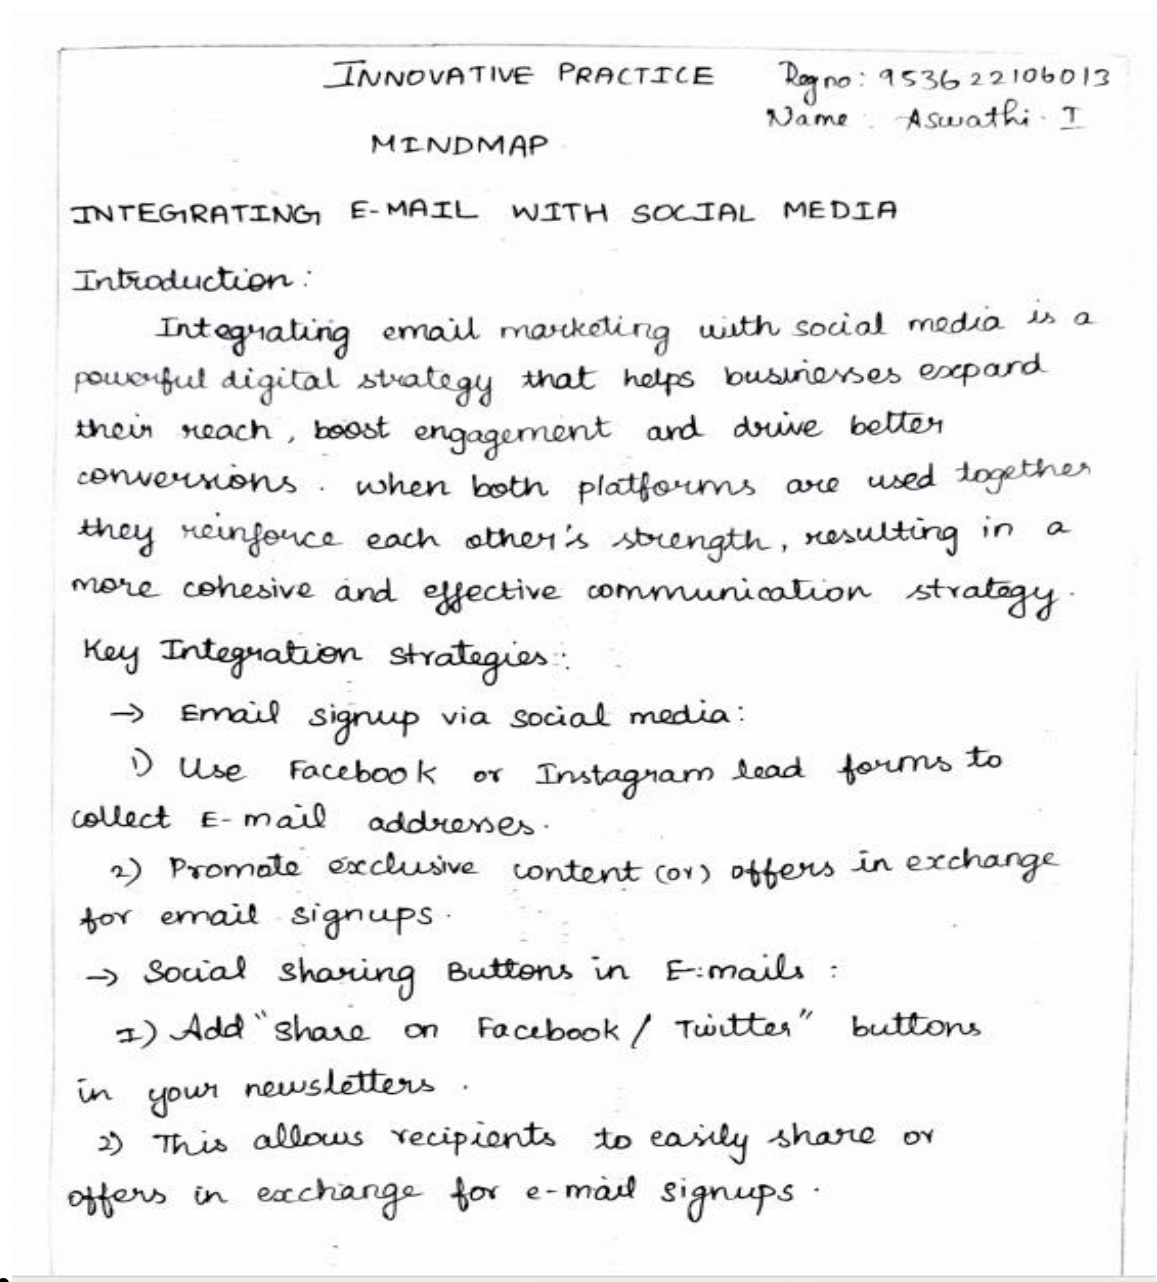 INNOVATIVE PRACTICE Reg no: 953622106013
Name: Aswathi. I
MINDMAP
INTEGRATING E-MAIL WITH SOCIAL MEDIA
Introduction:
Integrating email marketing with social media is a
powerful digital strategy that helps businesses expand
their reach, boost engagement and drive better
conversions. when both platforms are used together
they reinforce each other's strength, resulting in a
more cohesive and effective communication strategy.
Key Integration strategies:
→ Email signup via social media:
1) Use Facebook or Instagram lead forms to
collect E-mail addresses.
2) Promote exclusive content (or) offers in exchange
for email signups.
→ Social sharing Buttons in E-mails :
I) Add "share on Facebook / Twitter" buttons
in your newsletters.
2) This allows recipients to easily share or
offers in exchange for e-mail signups.